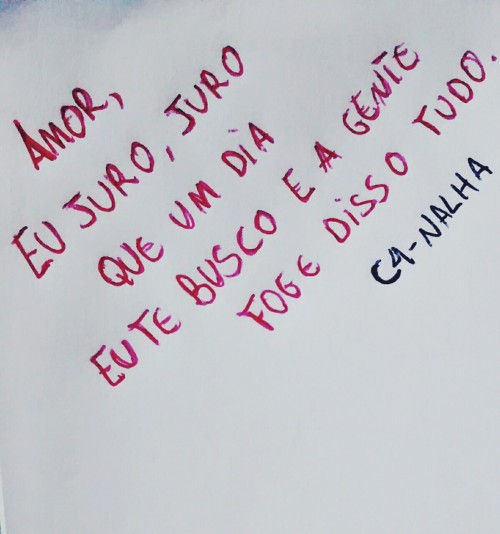 AMOR,
EU JURO, JURO
QUE UM DIA
EU TE BUSCO E A GENTE
FOGE DISSO TUDO.
C4-NALHA